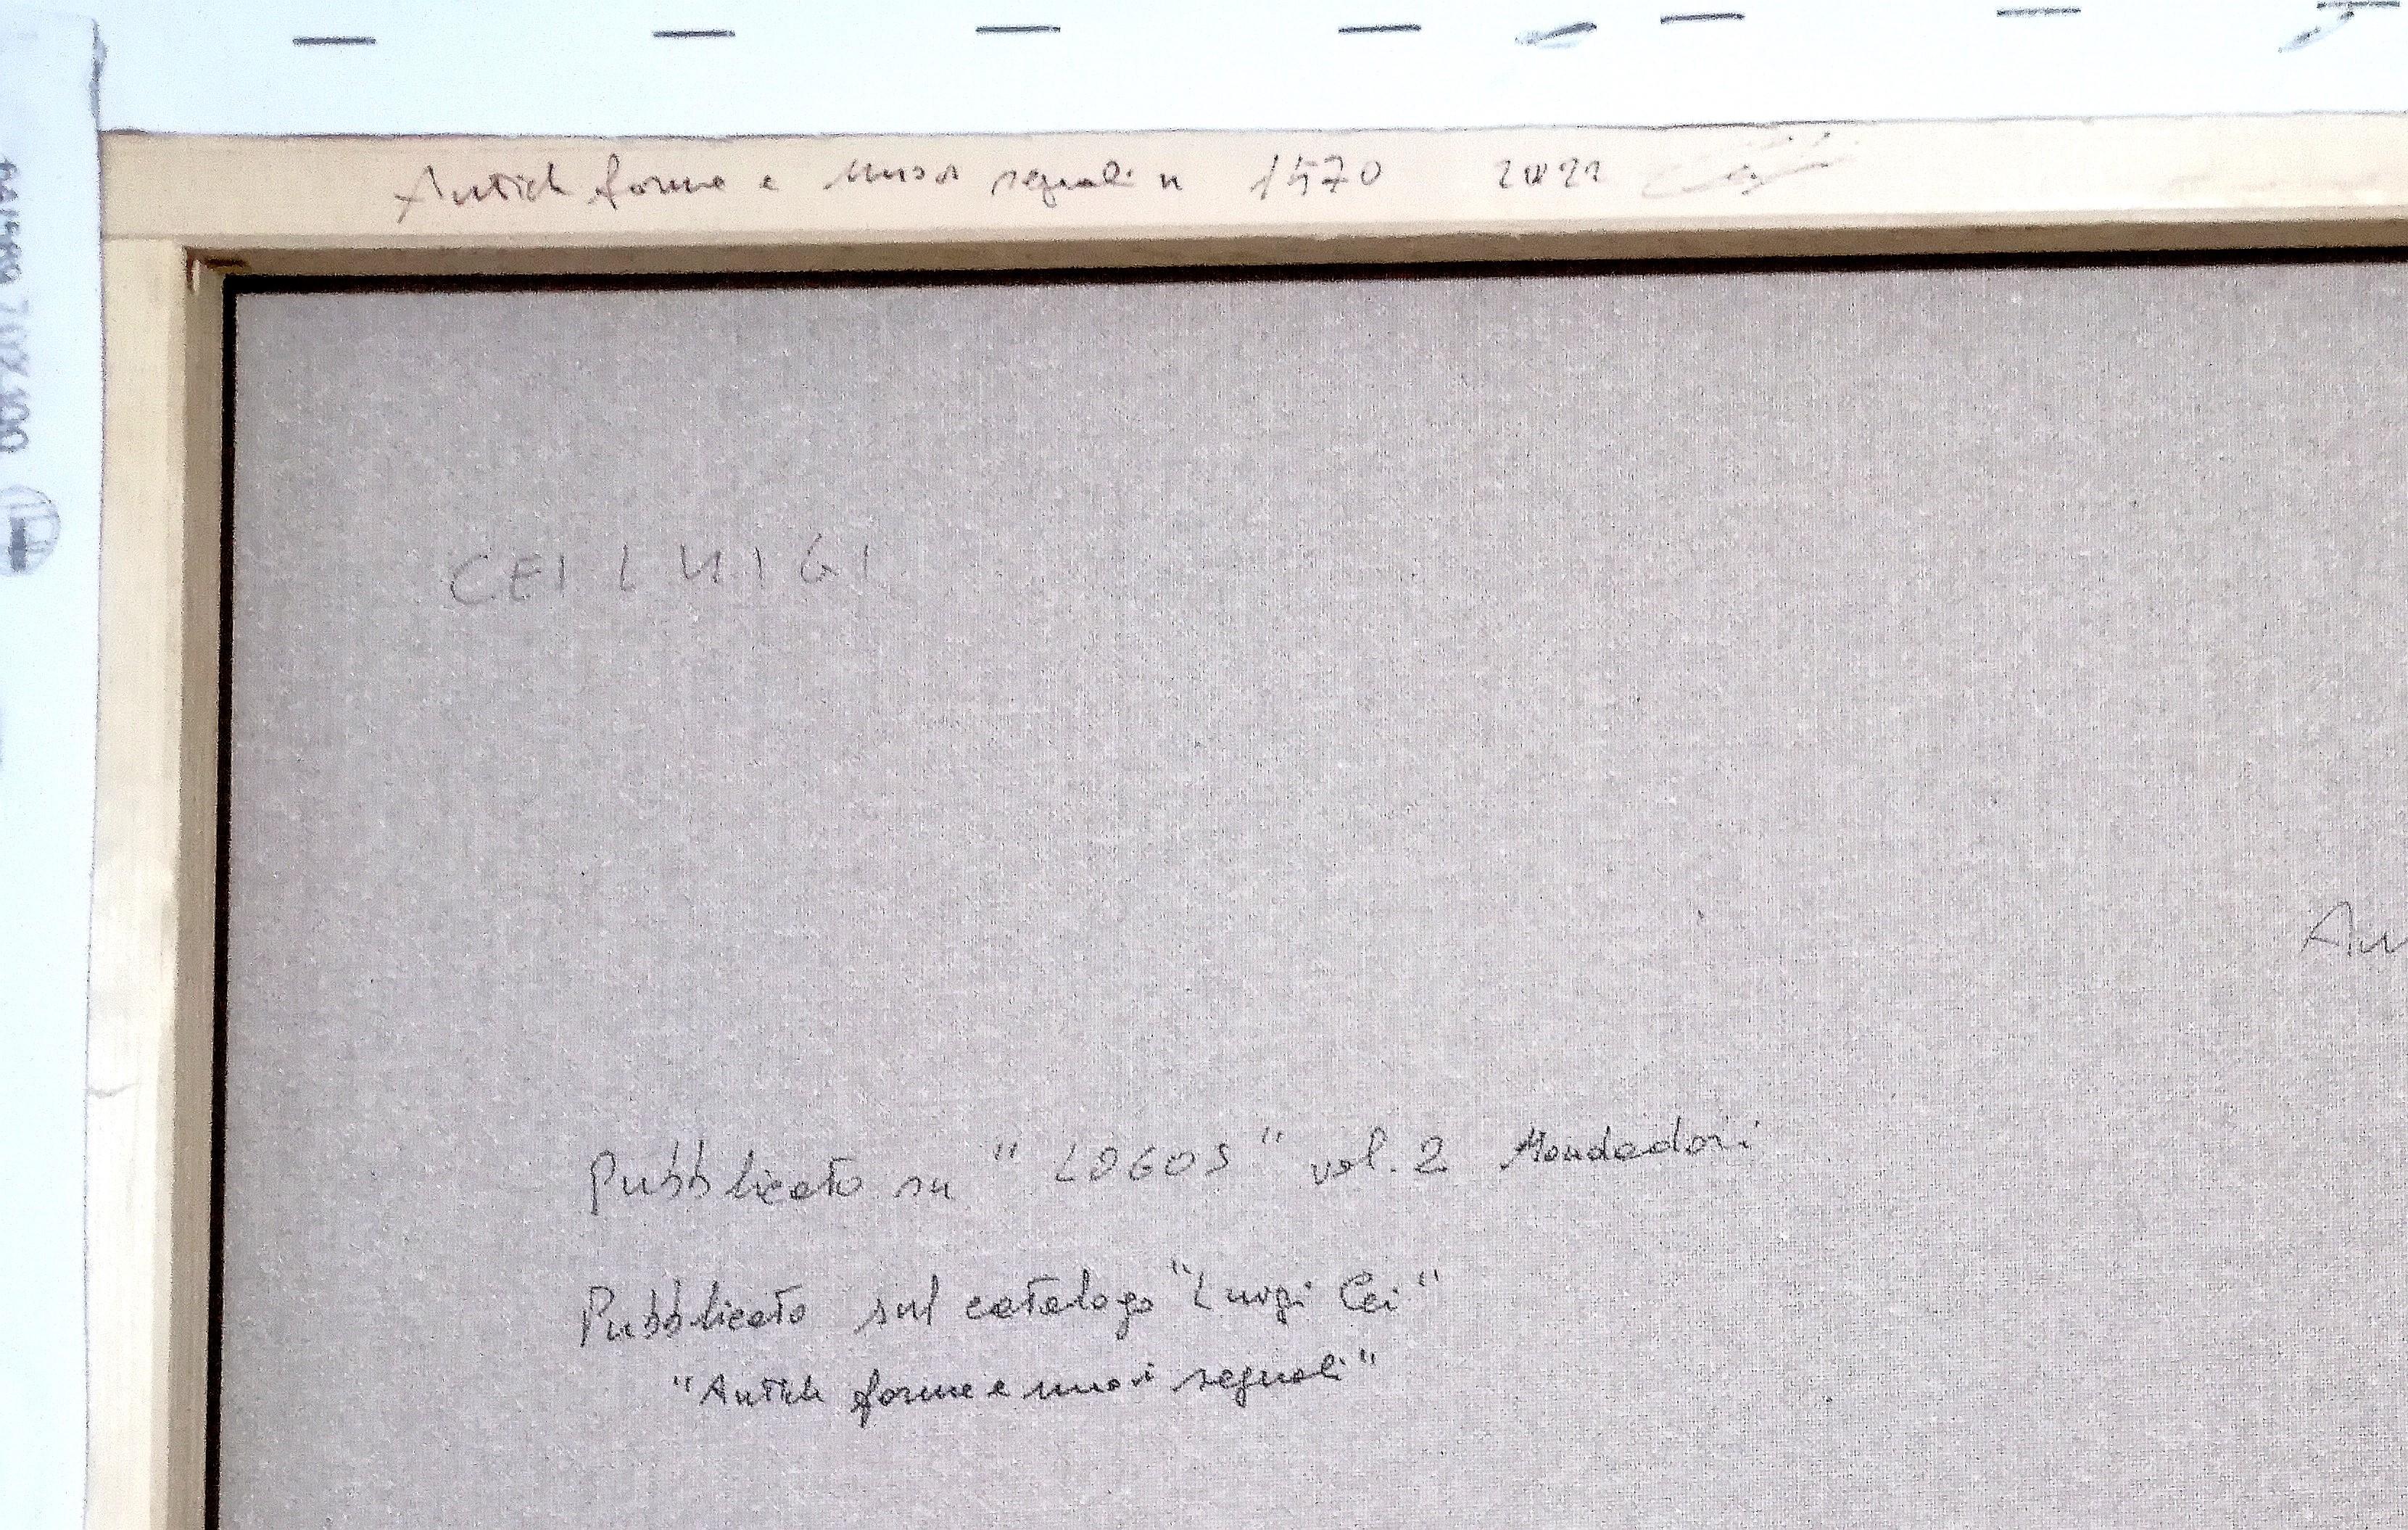 Antich forme e nuovi segnali n 1570 2021
CEI LUIGI
Pubblicato su "LOGOS" vol. 2 Mondadori
Pubblicato sul catalogo "Luigi Cei"
"Antich forme e nuovi segnali"